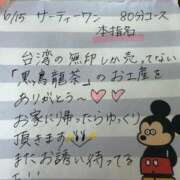 6/15 サーティーワン 80分コース
本指名
台湾の無印しか売ってない
「黒烏龍茶」のお土産を
ありがとう〜♡♡
お家に帰ったらゆっくり
頂きます!!
またお誘い待ってる